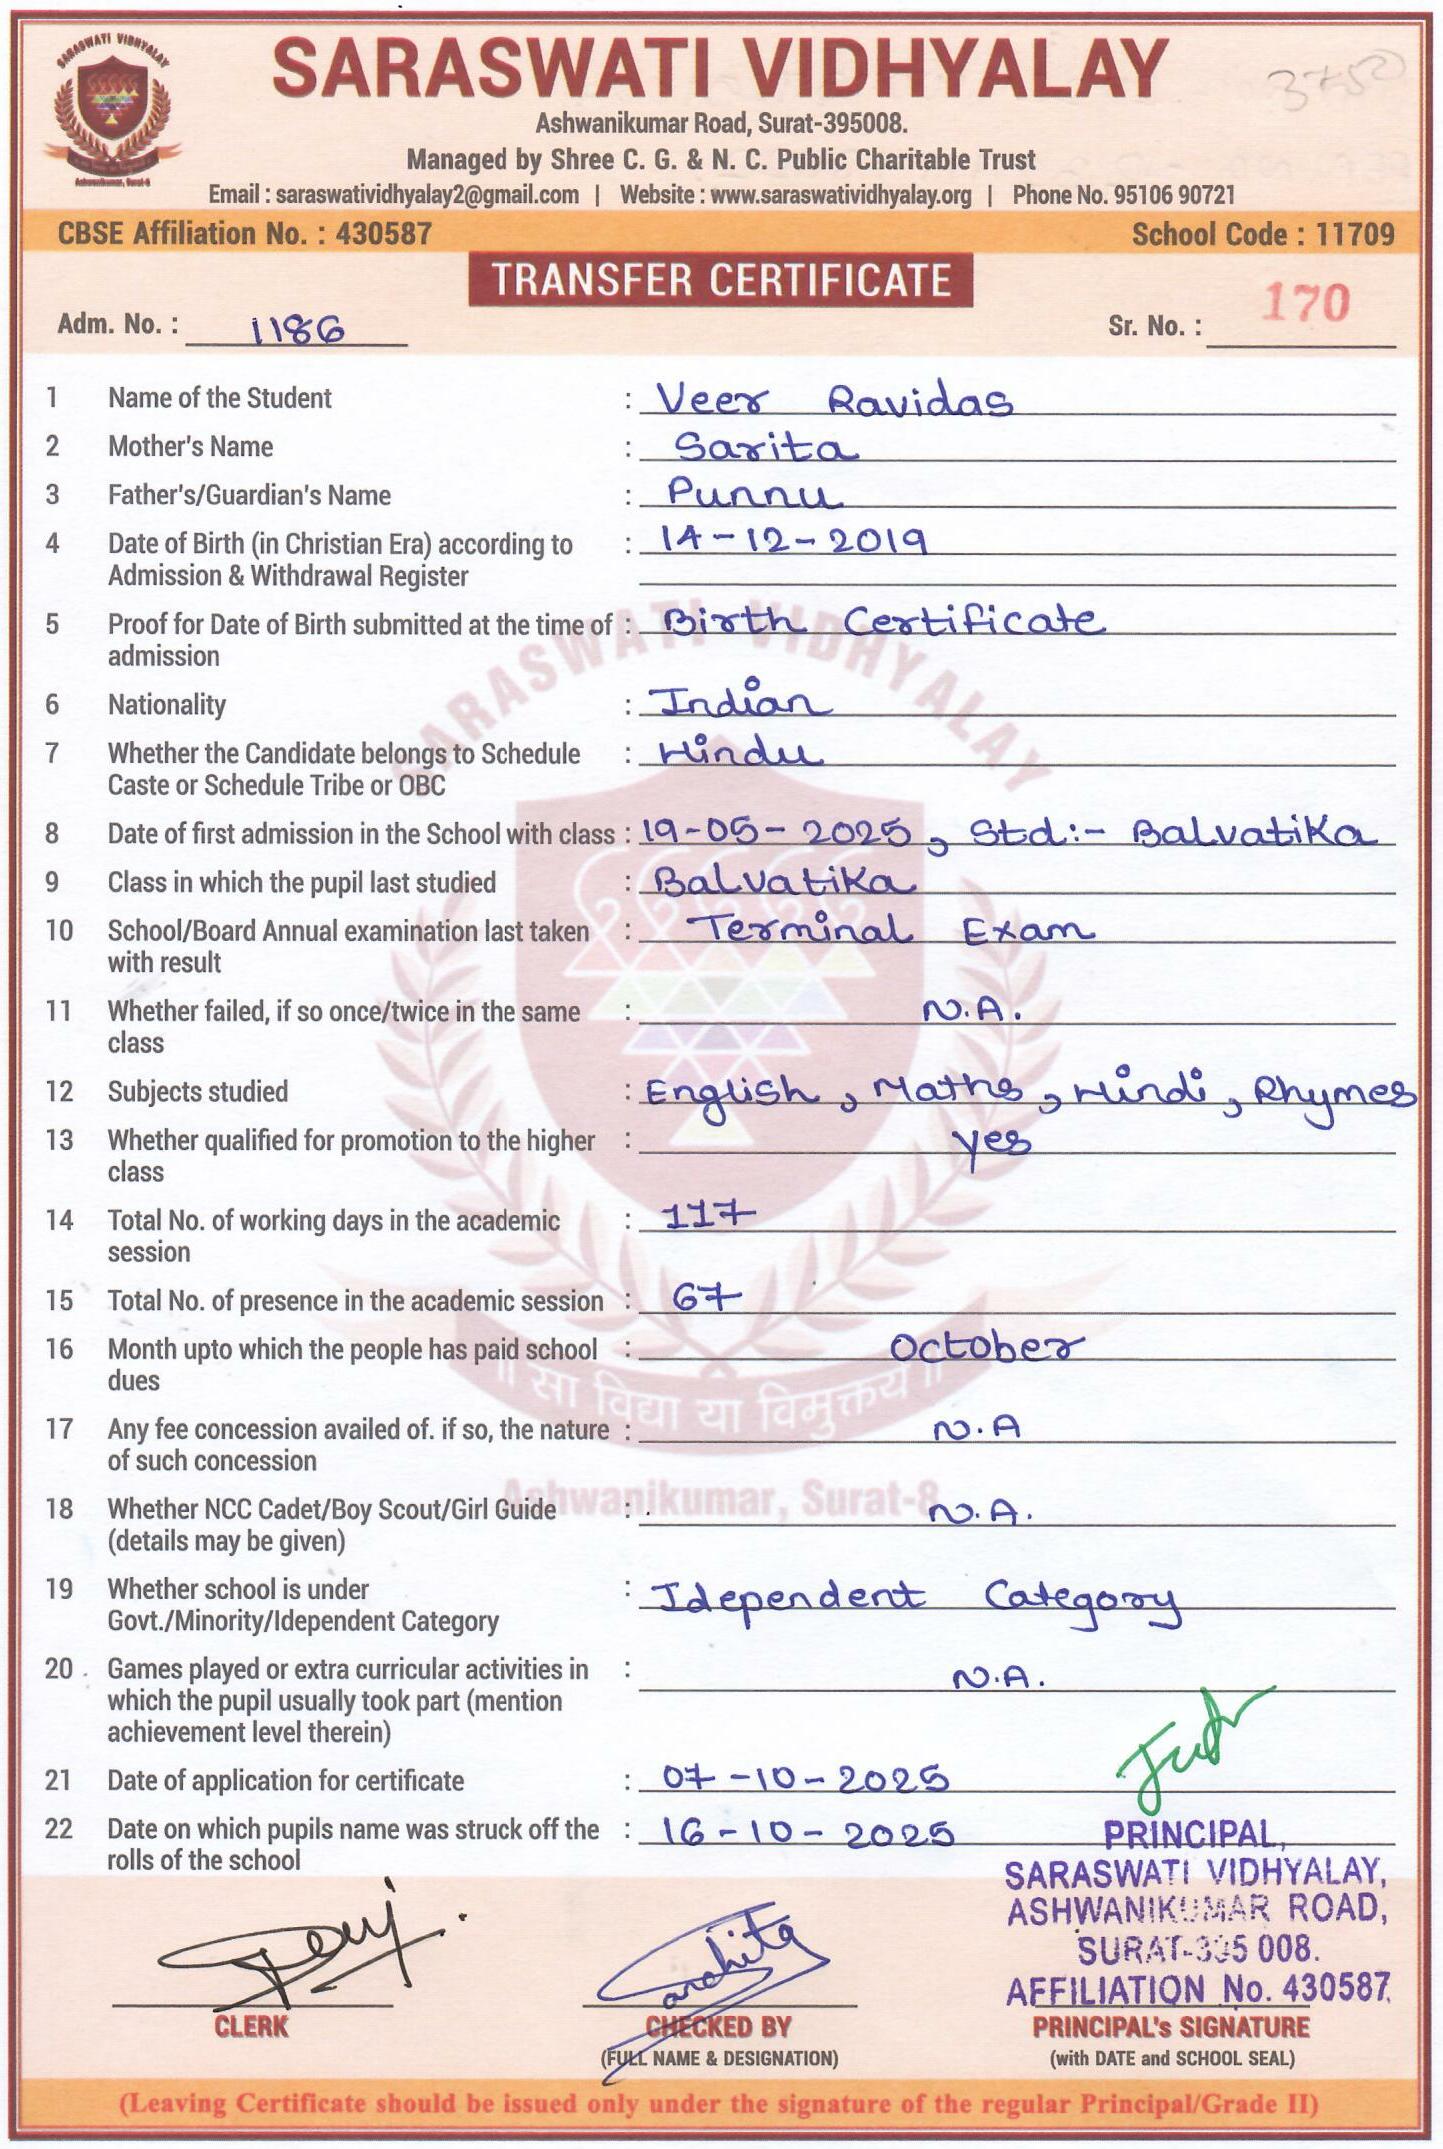 SARASWATI VIDHYALAY
SARASWATI VIDHYALAY
Ashwanikumar Road, Surat-395008.
Managed by Shree C. G. & N. C. Public Charitable Trust
Ashwanikumar, Surat-8
Email : saraswatividhyalay2@gmail.com | Website : www.saraswatividhyalay.org | Phone No. 95106 90721
CBSE Affiliation No. : 430587 School Code : 11709
TRANSFER CERTIFICATE
Adm. No. : 1186 Sr. No. : 170
1 Name of the Student : Veer Ravidas
2 Mother's Name : Sarita
3 Father's/Guardian's Name : Punnu
4 Date of Birth (in Christian Era) according to : 14-12-2019
Admission & Withdrawal Register
5 Proof for Date of Birth submitted at the time of : Birth Certificate
admission
SARASWATI VIDHYALAY
6 Nationality : Indian
7 Whether the Candidate belongs to Schedule : Hindu
Caste or Schedule Tribe or OBC
8 Date of first admission in the School with class : 19-05-2025, Std:- Balvatika
9 Class in which the pupil last studied : Balvatika
10 School/Board Annual examination last taken : Terminal Exam
with result
11 Whether failed, if so once/twice in the same : N.A.
class
12 Subjects studied : English, Maths, Hindi, Rhymes
13 Whether qualified for promotion to the higher : Yes
class
14 Total No. of working days in the academic : 117
session
15 Total No. of presence in the academic session : 67
16 Month upto which the people has paid school : October
dues
॥ सा विद्या या विमुक्तये ॥
17 Any fee concession availed of. if so, the nature : N.A
of such concession
Ashwanikumar, Surat-8
18 Whether NCC Cadet/Boy Scout/Girl Guide : N.A.
(details may be given)
19 Whether school is under : Idependent Category
Govt./Minority/Idependent Category
20 Games played or extra curricular activities in : N.A.
which the pupil usually took part (mention
achievement level therein)
21 Date of application for certificate : 07-10-2025
22 Date on which pupils name was struck off the : 16-10-2025
rolls of the school
PRINCIPAL,
SARASWATI VIDHYALAY,
ASHWANIKUMAR ROAD,
SURAT-395 008.
AFFILIATION No. 430587.
CLERK CHECKED BY PRINCIPAL's SIGNATURE
(FULL NAME & DESIGNATION) (with DATE and SCHOOL SEAL)
(Leaving Certificate should be issued only under the signature of the regular Principal/Grade II)